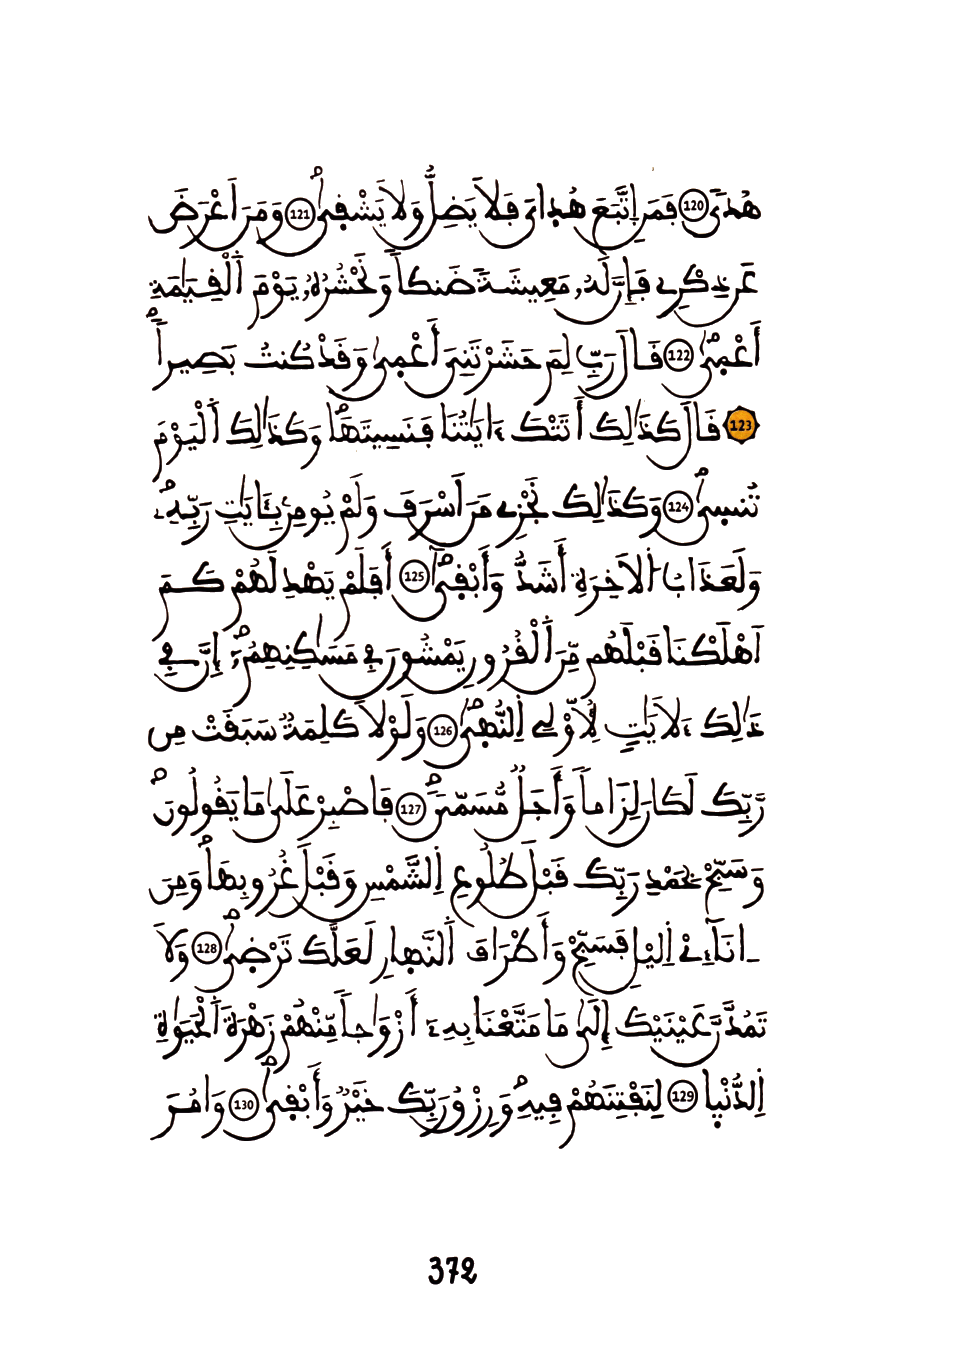 هُدىَۖ 120 فَمَنِ اِ۪تَّبَعَ هُد۪ايَ فَلَا يَضِلُّ وَلَا يَشْق۪يٰۖ 121 وَمَنَ اَعْرَضَ
عَن ذِكْرِے فَإِنَّ لَهُۥ مَعِيشَةٗ ضَنكاٗ وَنَحْشُرُهُۥ يَوْمَ اَ۬لْقِيَٰمَةِ
أَعْم۪يٰۖ 122 قَالَ رَبِّ لِمَ حَشَرْتَنِيَ أَعْم۪يٰ وَقَدْ كُنتُ بَصِيراٗۖ
123 قَالَ كَذَٰلِكَ أَتَتْكَ ءَايَٰتُنَا فَنَسِيتَهَاۖ وَكَذَٰلِكَ اَ۬لْيَوْمَ
تُنس۪يٰۖ 124 وَكَذَٰلِكَ نَجْزِے مَنَ اَسْرَفَ وَلَمْ يُومِنۢ بِـَٔايَٰتِ رَبِّهِۦۖ
وَلَعَذَابُ اُ۬لَاخِرَةِ أَشَدُّ وَأَبْق۪يٰٓۖ 125 أَفَلَمْ يَهْدِ لَهُمْ كَمَ
اَهْلَكْنَا قَبْلَهُم مِّنَ اَ۬لْقُرُونِ يَمْشُونَ فِے مَسَٰكِنِهِمُۥٓۖ إِنَّ فِے
ذَٰلِكَ ءَلَايَٰتٖ لِّأُوْلِے اِ۬لنُّه۪يٰۖ 126 وَلَوْلَا كَلِمَةٞ سَبَقَتْ مِن
رَّبِّكَ لَكَانَ لِزَاماٗ وَأَجَلٞ مُّسَمّيَۖ 127 فَاصْبِرْ عَلَىٰ مَا يَقُولُونَۖ
وَسَبِّحْ بِحَمْدِ رَبِّكَ قَبْلَ طُلُوعِ اِ۬لشَّمْسِ وَقَبْلَ غُرُوبِهَاۖ وَمِنَ
اٰنَآءِےْ اِ۬ليْلِ فَسَبِّحْ وَأَطْرَافَ اَ۬لنَّه۪ارِ لَعَلَّكَ تَرْض۪يٰۖ 128 وَلَا
تَمُدَّنَّ عَيْنَيْكَ إِلَىٰ مَا مَتَّعْنَا بِهِۦٓ أَزْوَٰجاٗ مِّنْهُمْ زَهْرَةَ اَ۬لْحَيَوٰةِ
اِ۬لدُّنْي۪ا 129 لِنَفْتِنَهُمْ فِيهِۖ وَرِزْقُ رَبِّكَ خَيْرٞ وَأَبْق۪يٰۖ 130 وَامُرَ
372